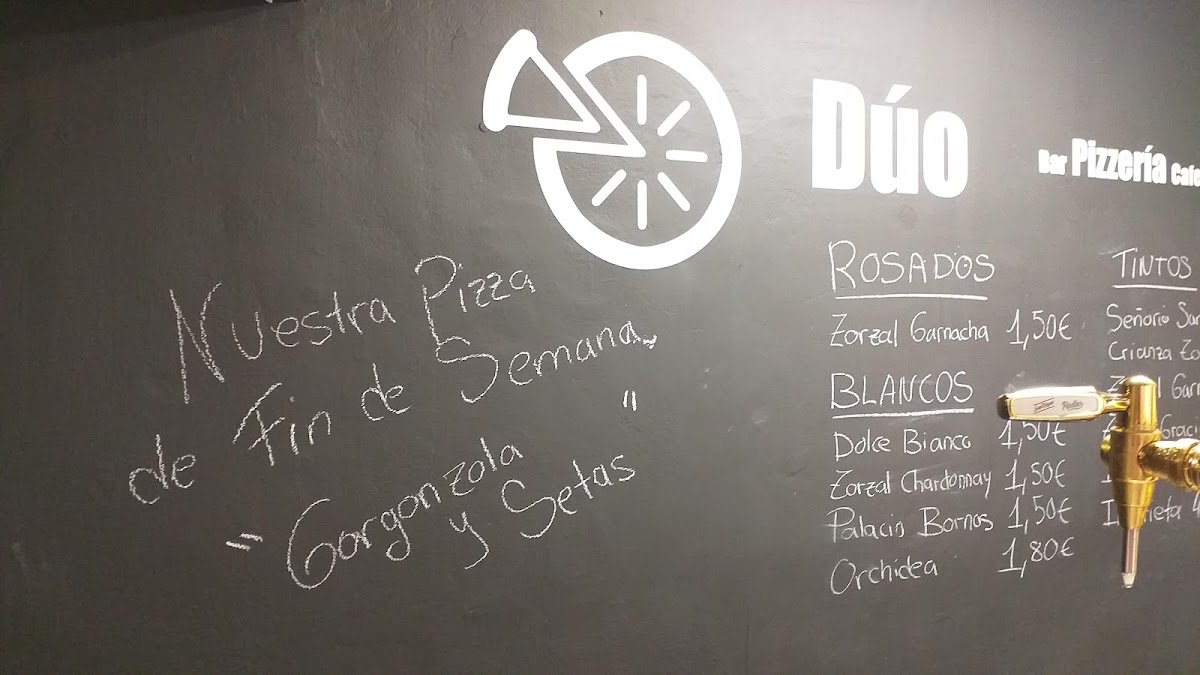 Dúo
Bar Pizzería Cafe
Nuestra Pizza
de Fin de Semana
"Gorgonzola
y Setas"
ROSADOS
Zorzal Garnacha 1,50€
BLANCOS
Dolce Bianco 1,50€
Zorzal Chardonnay 1,50€
Palacio Bornos 1,50€
Orchidea 1,80€
TINTOS
Señorio
Crianza